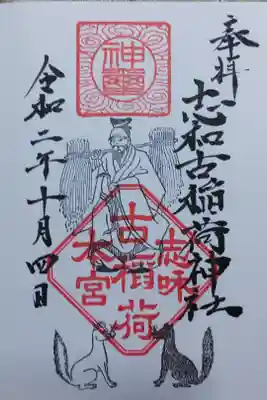 奉拝
志和古稲荷神社
令和二年十月四日
志咊
古稲荷
本宮